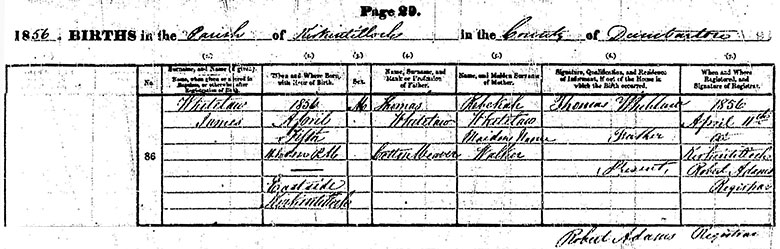 Page 29.
1856. BIRTHS in the Parish of Kirkintilloch in the County of Dumbarton
(1.) (2.) (3.) (4.) (5.) (6.) (7.)
No.
Surname, and Name (if given).
Name, when given or altered in Baptism, or otherwise, after Registration of Birth.
When and Where Born, with Hour of Birth.
Sex.
Name, Surname, and Rank or Profession of Father.
Name, and Maiden Surname of Mother.
Signature, Qualification, and Residence of Informant, if out of the House in which the Birth occurred.
When and Where Registered, and Signature of Registrar.
86
Whitelaw
James
1856
April
Fifth
PM
East side
Kirkintilloch
M
Thomas
Whitelaw
Cotton Weaver
Rebekah
Whitelaw
Maiden Name
Walker
Thomas Whitelaw
Father
Present
1856
April 11th
at
Kirkintilloch
Robert Adams
Registrar
Robert Adams Registrar